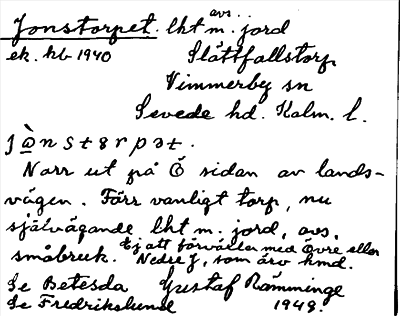 Jonstorpet. lht m. avs. jord
ek. kb 1940 Slättfallstorp
Vimmerby sn
Sevede hd. Kalm. l.
Norr ut på Ö sidan av lands-
vägen. Förr vanligt torp, nu
självägande lht m. jord, avs.
småbruk. Ej att förväxlas med Övre eller
Nedre J, som äro hmd.
Se Betesda Gustaf Rämminge
Se Fredrikslund 1948.